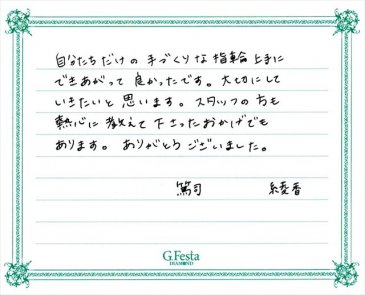 自分たちだけの手づくりな指輪上手に
できあがって良かったです。大切にして
いきたいと思います。スタッフの方も
熱心に教えて下さったおかげでも
あります。ありがとうございました。
篤司 綾香
G.Festa
DIAMOND